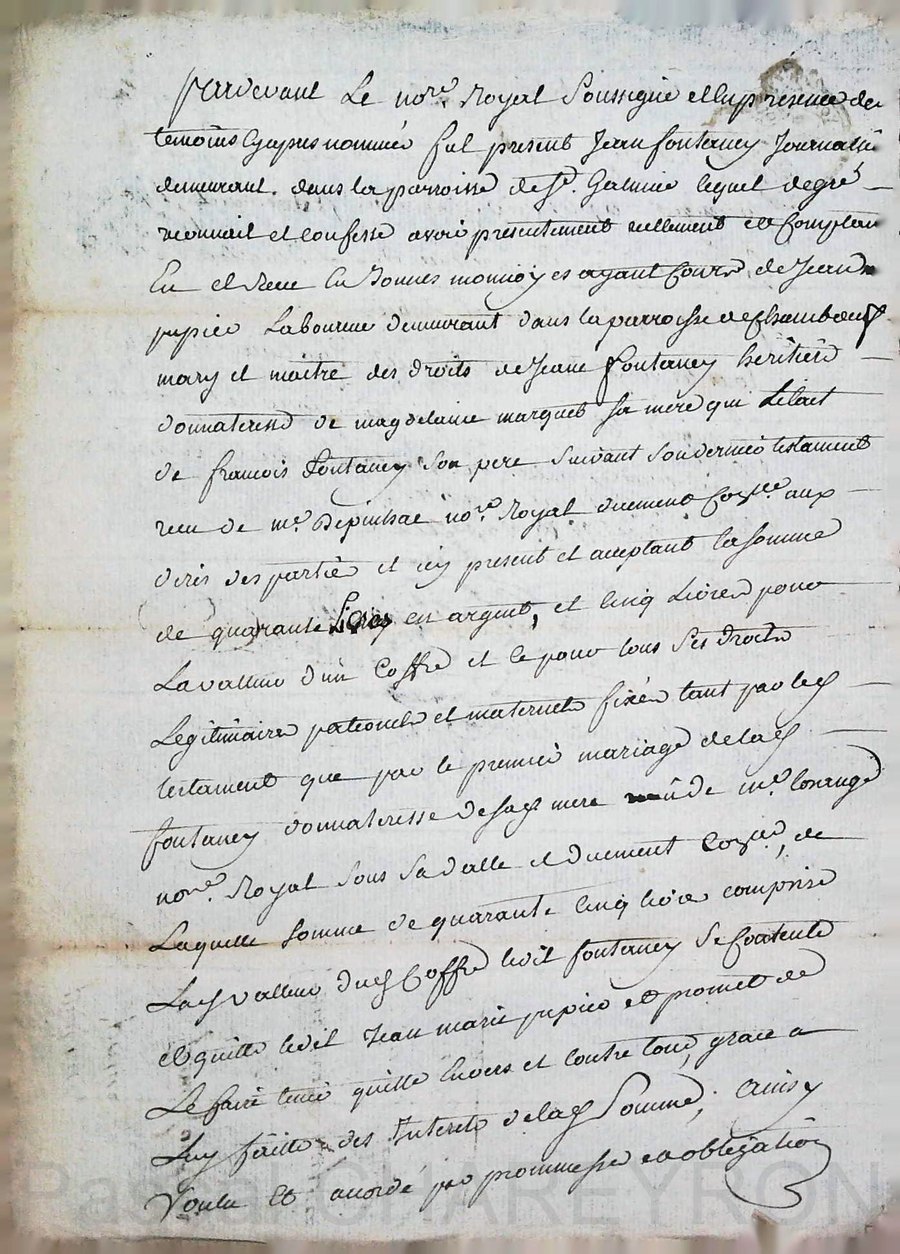 pardevant Le no.re Royal Soussigné et En présence des
temoins Cyapres nommés fut present Jean fontaney Journallié
demeurant dans la parroisse de St. Galmie lequel de gré
reconnait et confesse avoir presentement reellement et Comptan
Eu et Receu En Bonnes monnoyes ayant Cours de Jean
pupier Laboureur demeurant dans la parroisse de Chambœuf
mary et maitre des droits de Jeane fontaney heritiere
donnateresse de magdelaine marques sa mère qui L'etait
de francois fontaney son pere suivant son dernier testament
recu de me. Depinhac no.re Royal duement Co.llé aux
dires des partie et icy present et acceptant la somme
de quarante Livres en argent, et Cinq Livres pour
La valleur d'un Coffre et ce pour tous ses droits
Legitimaires paternels et maternels fixés tant par led
testament que par le premier mariage de lad
fontaney donnateresse de sad mere de me.
no.re Royal sous sa datte et duement Co.llé, de
Laquelle somme de quarante Cinq livres comprise
Lad valleur dud Coffre ledit fontaney se Contente
et quitte ledit Jean marie pupier et promet de
Le faire tenir quitte Envers et Contre tous, grace a
Luy faitte des Interets de lad Somme; Ainsy
Voulu et accordé par prommesse et obligation
Pascal CHAREYRON